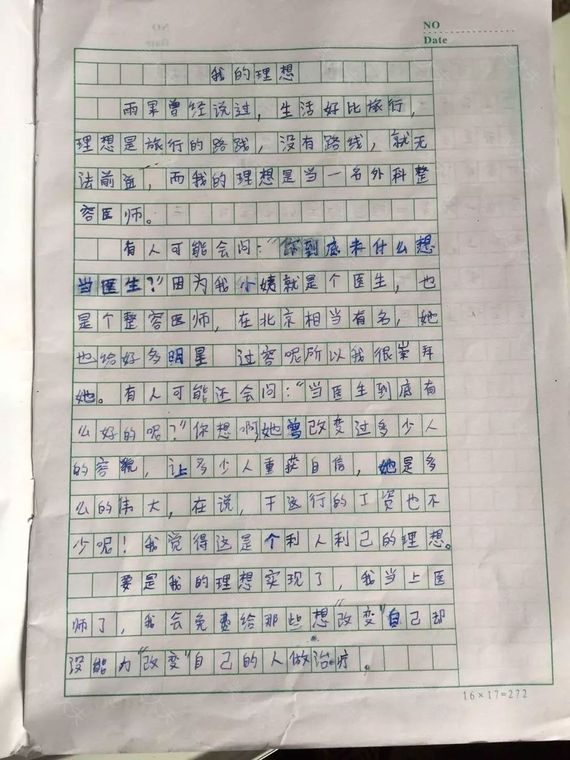 NO
Date
我的理想
雨果曾经说过，生活好比旅行，
理想是旅行的路线，没有路线，就无
法前进，而我的理想是当一名外科整
容医师。
有人可能会问：“你到底来什么想
当医生？”因为我小姨就是个医生，也
是个整容医师，在北京相当有名，她
也给好多明星 过容呢所以我很崇拜
她。有人可能还会问：“当医生到底有
么好的呢？”你想啊，她曾改变过多少人
的容貌，让多少人重获自信，她是多
么的伟大，在说，干这行的工资也不
少呢！我觉得这是个利人利己的理想。
要是我的理想实现了，我当上医
师了，我会免费给那些想“改变”自己却
没能力“改变”自己的人做治疗。
16×17=272